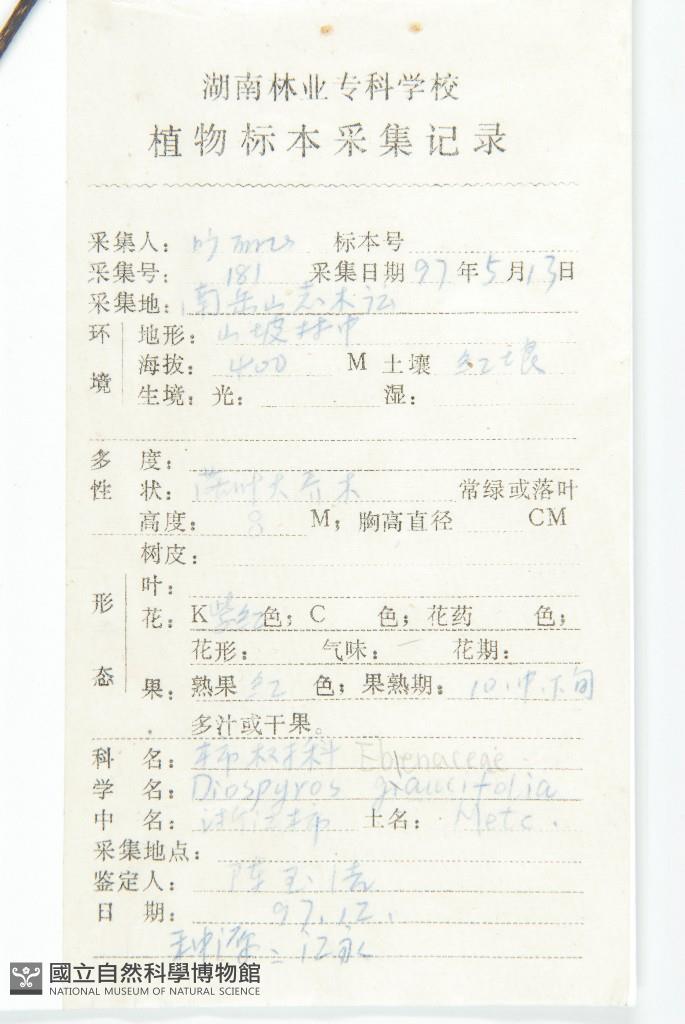 湖南林业专科学校
植物标本采集记录
采集人： 标本号
采集号： 181 采集日期 97年5月13日
采集地： 南岳山
环境 地形： 山坡林中
海拔： 400 M 土壤 红壤
生境：光： 湿：
多度：
性状： 落叶大乔木 常绿或落叶
高度： 8 M；胸高直径 CM
形态 树皮：
叶：
花：K紫红色；C 色；花药 色；
花形： 气味： 花期：
果：熟果 红 色；果熟期：10.中.下旬
多汁或干果。
科名： 柿树科 Ebenaceae
学名： Diospyros glaucifolia
中名： 浙江柿 土名： Metc.
采集地点：
鉴定人： 陈
日期： 97.12.
江永
國立自然科學博物館
NATIONAL MUSEUM OF NATURAL SCIENCE